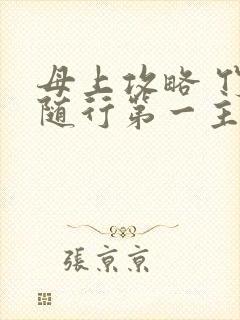 母上攻略
随行第一主
張京京